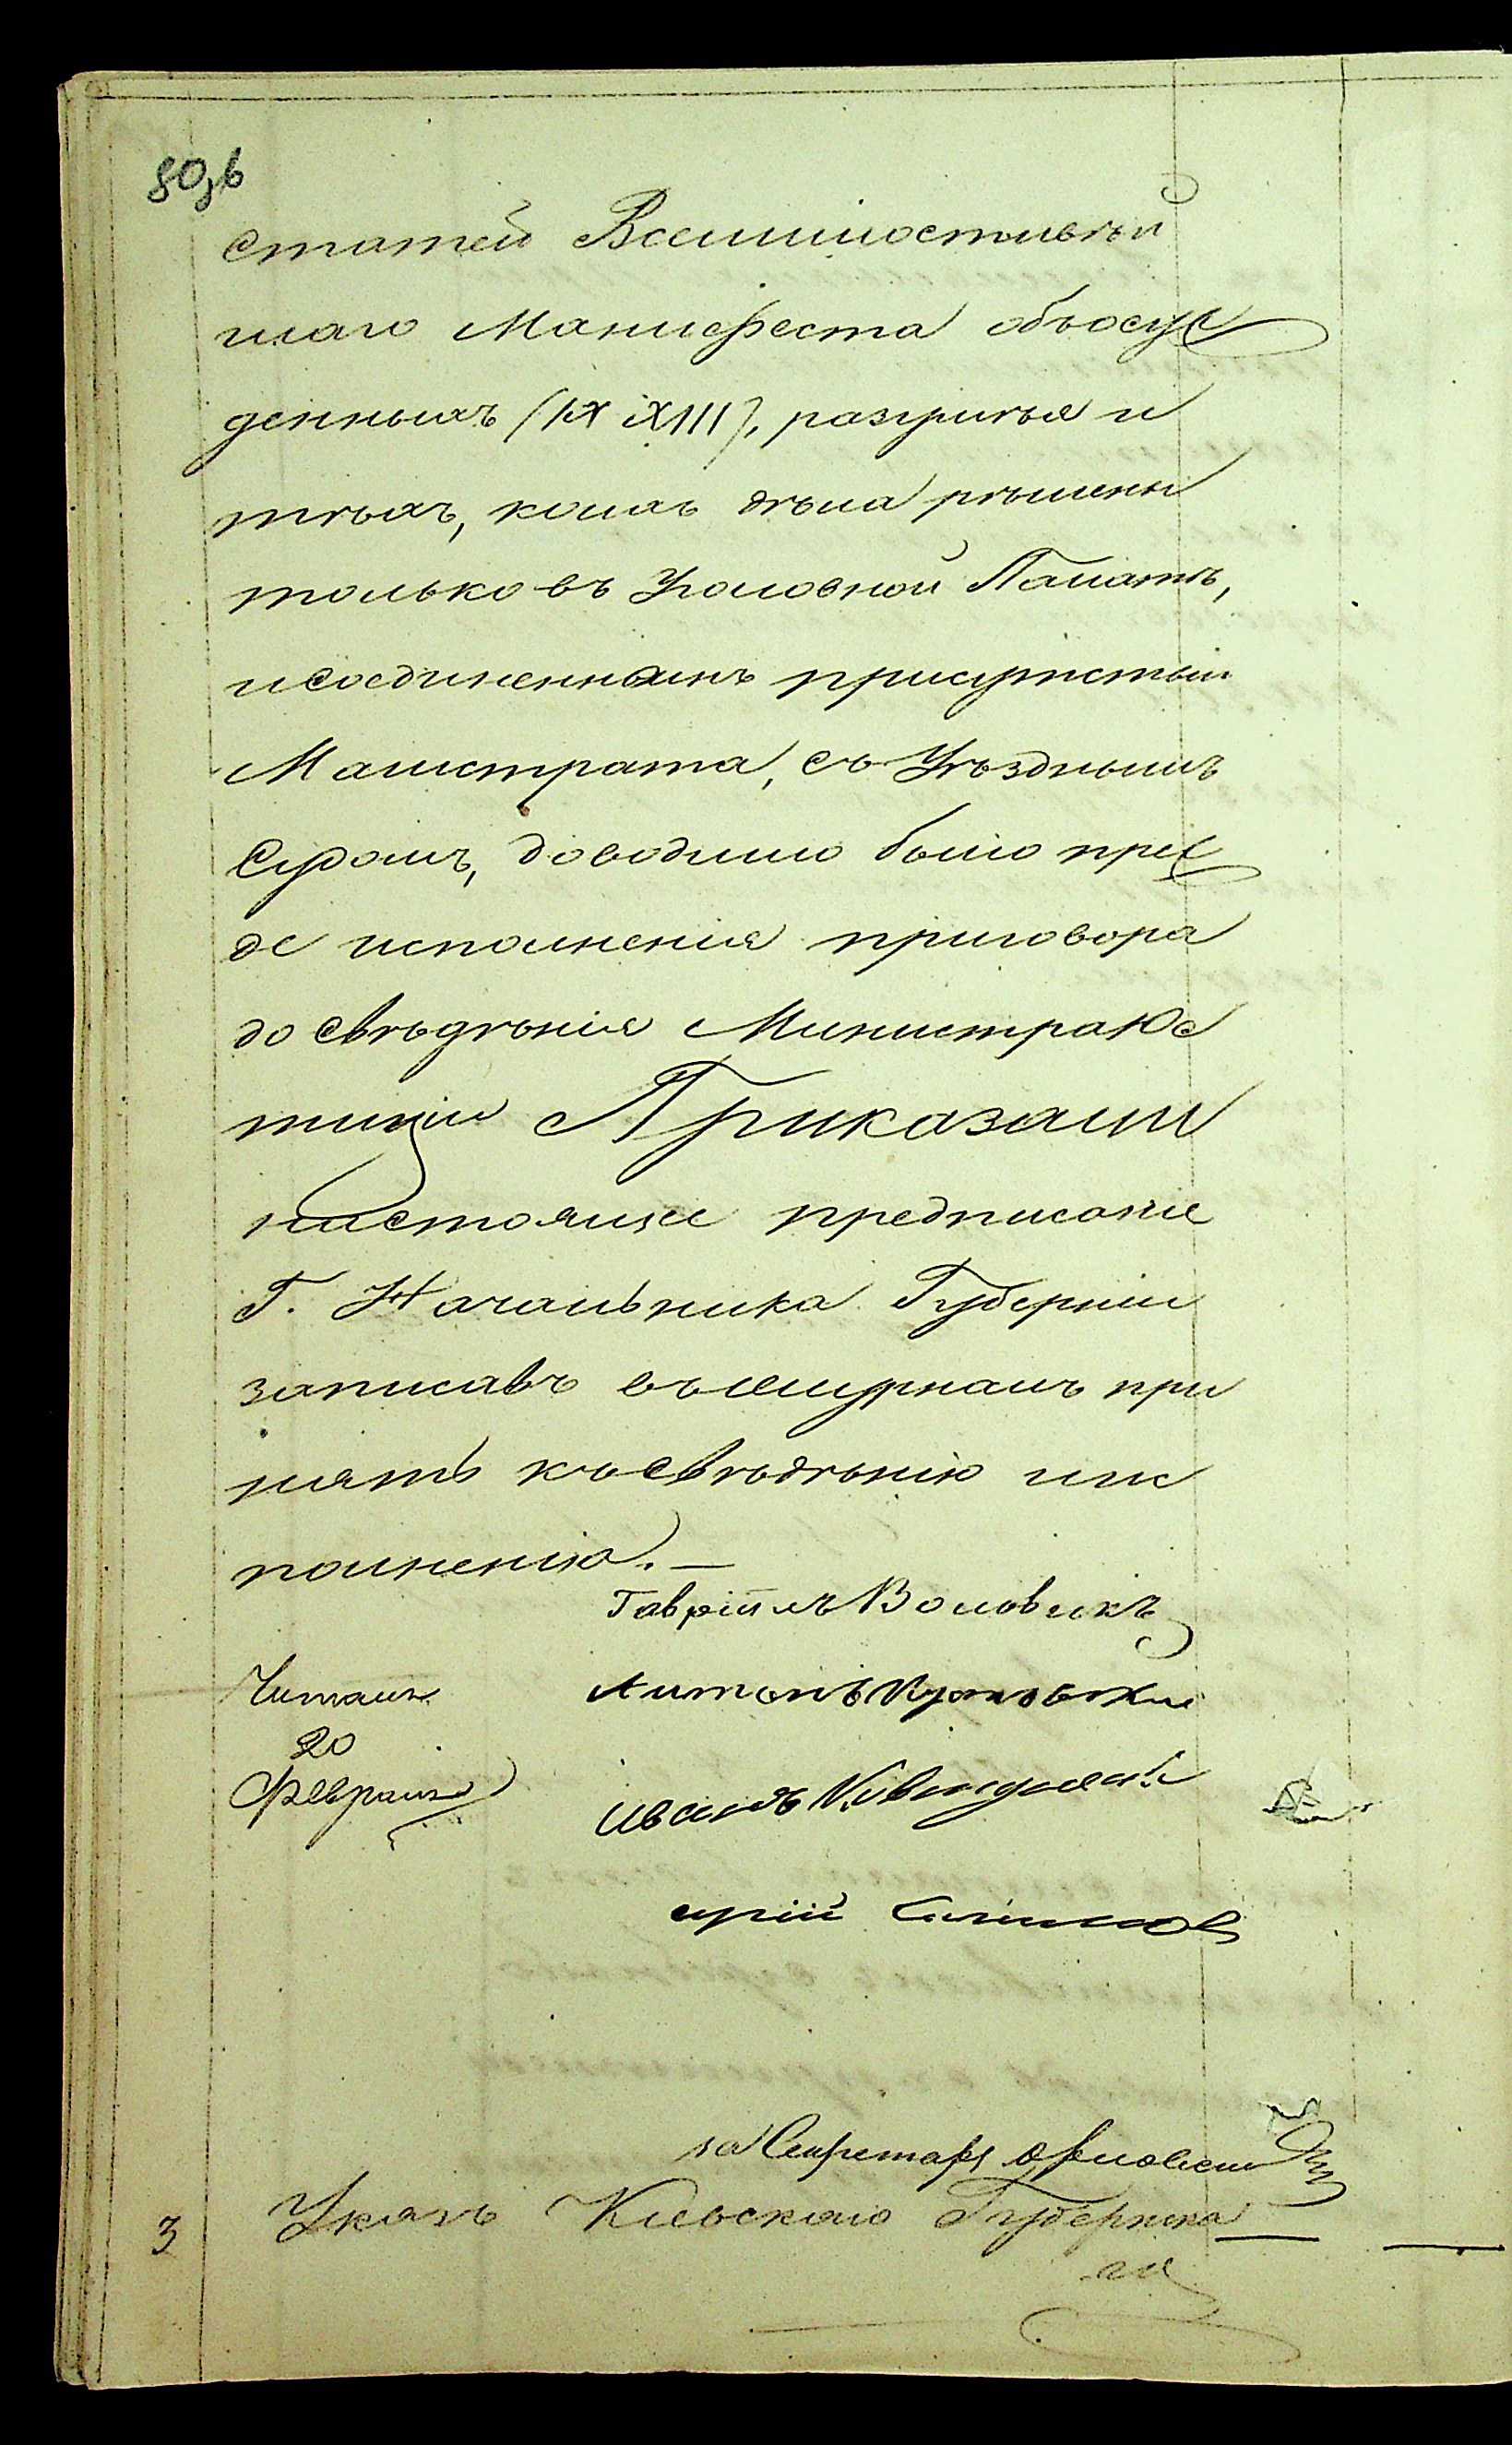 80,б
статей Всемилостивѣй
шаго Манифеста объосуж
денныхъ (IX и XIII), разумѣя и
тѣхъ, коихъ дѣла рѣшены
только въ Уголовной Палатѣ,
и соединеннымъ присутствіи
Магистрата, съ Уѣзднымъ
Судомъ, доводимо было преж
де исполненія приговора
до свѣдѣнія Министра Юс
тиціи Приказали
настоящее предписаніе
Г. Начальника Губерніи
записавъ въ журналъ при
нять къ свѣдѣнію и ис
полненію. —
Гавріилъ Воловикъ
Читалъ
Антонъ
20
Февраля
Иванъ
за Секретаря
3 Указъ Кіевскаго Губернска
го